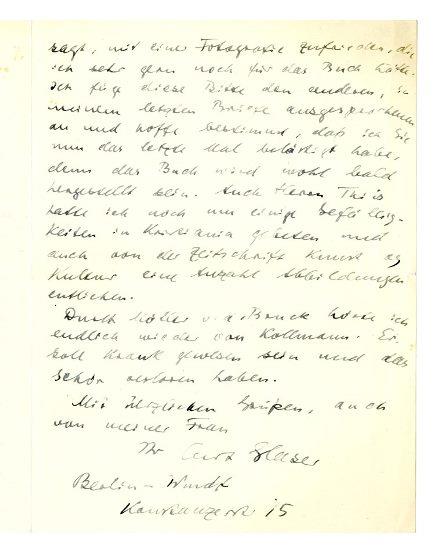 sagt, mit einer Fotografie zufrieden, die
ich sehr gern noch für das Buch hätte.
Ich füge diese Bitte den anderen, in
meinem letzten Briefe ausgesprochenen
an und hoffe bestimmt, daß ich Sie
nun das letzte Mal belästigt habe,
denn das Buch wird wohl bald
hergestellt sein. Auch Herrn Thiis
hatte ich noch um einige Gefällig-
keiten in Kristiania gebeten und
auch von der Zeitschrift Kunst og
Kultur eine Anzahl Abbildungen
entliehen.
Durch Möller v. d. Bruck hörte ich
endlich wieder von Kollmann. Er
soll krank gewesen sein und das
verloren haben.
Mit herzlichen Grüßen, auch
von meiner Frau
Ihr Curt Glaser
Berlin - Wmdf
15